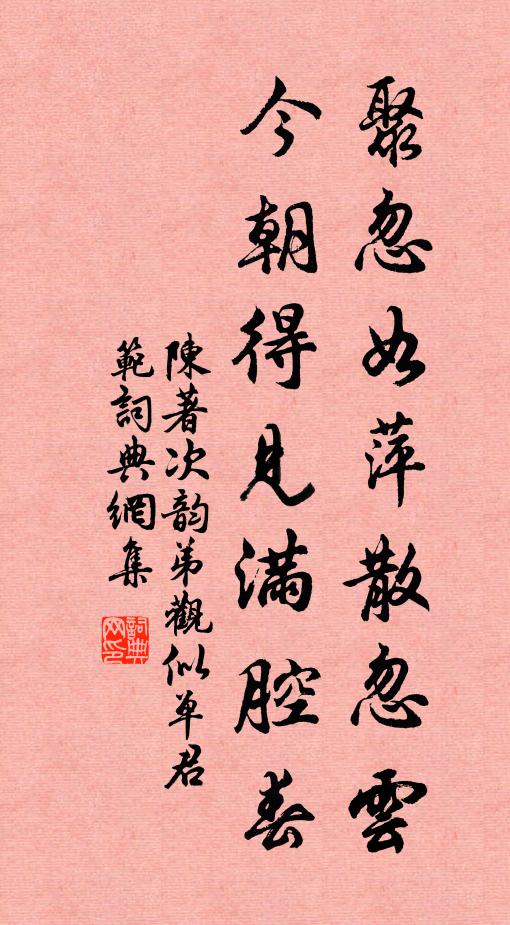 聚忽如萍散忽雲
今朝得見滿腔春
陳著次韵弟觀似單君
範詞典網集
詞典網印